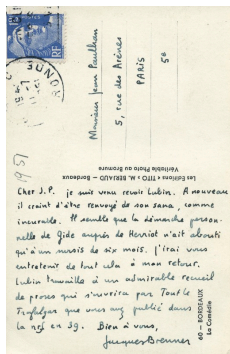 Monsieur Jean Paulhan
5, rue des Arènes
PARIS
5e
Les Editions « TITO » M. BERJAUD — Bordeaux
Véritable Photo au Bromure
60 — BORDEAUX
La Comédie
1951
Cher J.P. je suis venu revoir Lubin. A nouveau
il craint d'être renvoyé de son sana, comme
incurable. Il semble que la démarche person-
nelle de Gide auprès de Herriot n'ait abouti
qu'à un sursis de six mois. J'irai vous
entretenir de tout cela à mon retour.
Lubin travaille à un admirable recueil
de proses qui s'ouvrira par Tout le
Trafalgar que vous avez publié dans
la nrf en 39. Bien à vous,
Jacques Brenner